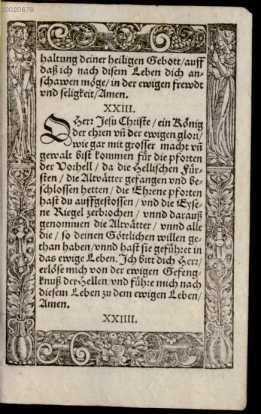 00020679
haltung deiner heiligen Gebott/auff
daß ich nach disem Leben dich an-
schawen möge/in der ewigen frewdt
vnd seligkeit/Amen.
XXIII.
O Herr Jesu Christe/ein König
der ehren vñ der ewigen glori/
wie gar mit grosser macht vñ
gewalt bist kommen für die pforten
der Vorhell/da die Hellischen Für-
sten/die Altvätter gefangen vnd be-
schlossen hetten/die Ehrene pforten
hast du auffgestossen/vnd die Eyse-
ne Riegel zerbrochen/vnnd darauß
genommen die Altvätter/vnnd alle
die/so deinen Göttlichen willen ge-
than haben/vnnd hast sie geführet in
das ewige Leben. Ich bitt dich Herr/
erlöse mich von der ewigen Gefeng-
knuß der Hellen/vnd führe mich nach
diesem Leben zu dem ewigen Leben/
Amen.
XXIIII.